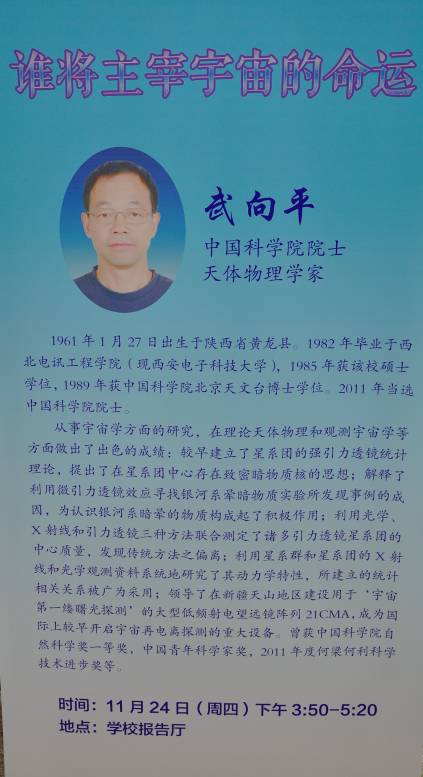 谁将主宰宇宙的命运
武向平
中国科学院院士
天体物理学家
1961 年 1 月 27 日出生于陕西省黄龙县。1982 年毕业于西
北电讯工程学院（现西安电子科技大学），1985 年获该校硕士
学位，1989 年获中国科学院北京天文台博士学位。2011 年当选
中国科学院院士。
从事宇宙学方面的研究，在理论天体物理和观测宇宙学等
方面做出了出色的成绩：较早建立了星系团的强引力透镜统计
理论，提出了在星系团中心存在致密暗物质核的思想；解释了
利用微引力透镜效应寻找银河系晕暗物质实验所发现事例的成
因，为认识银河系暗晕的物质构成起了积极作用；利用光学、
X 射线和引力透镜三种方法联合测定了诸多引力透镜星系团的
中心质量，发现传统方法之偏离；利用星系群和星系团的 X 射
线和光学观测资料系统地研究了其动力学特性，所建立的统计
相关关系被广为采用；领导了在新疆天山地区建设用于‘宇宙
第一缕曙光探测’的大型低频射电望远镜阵列 21CMA，成为国
际上较早开启宇宙再电离探测的重大设备。曾获中国科学院自
然科学奖一等奖，中国青年科学家奖，2011 年度何梁何利科学
技术进步奖等。
时间：11 月 24 日（周四）下午 3:50-5:20
地点：学校报告厅